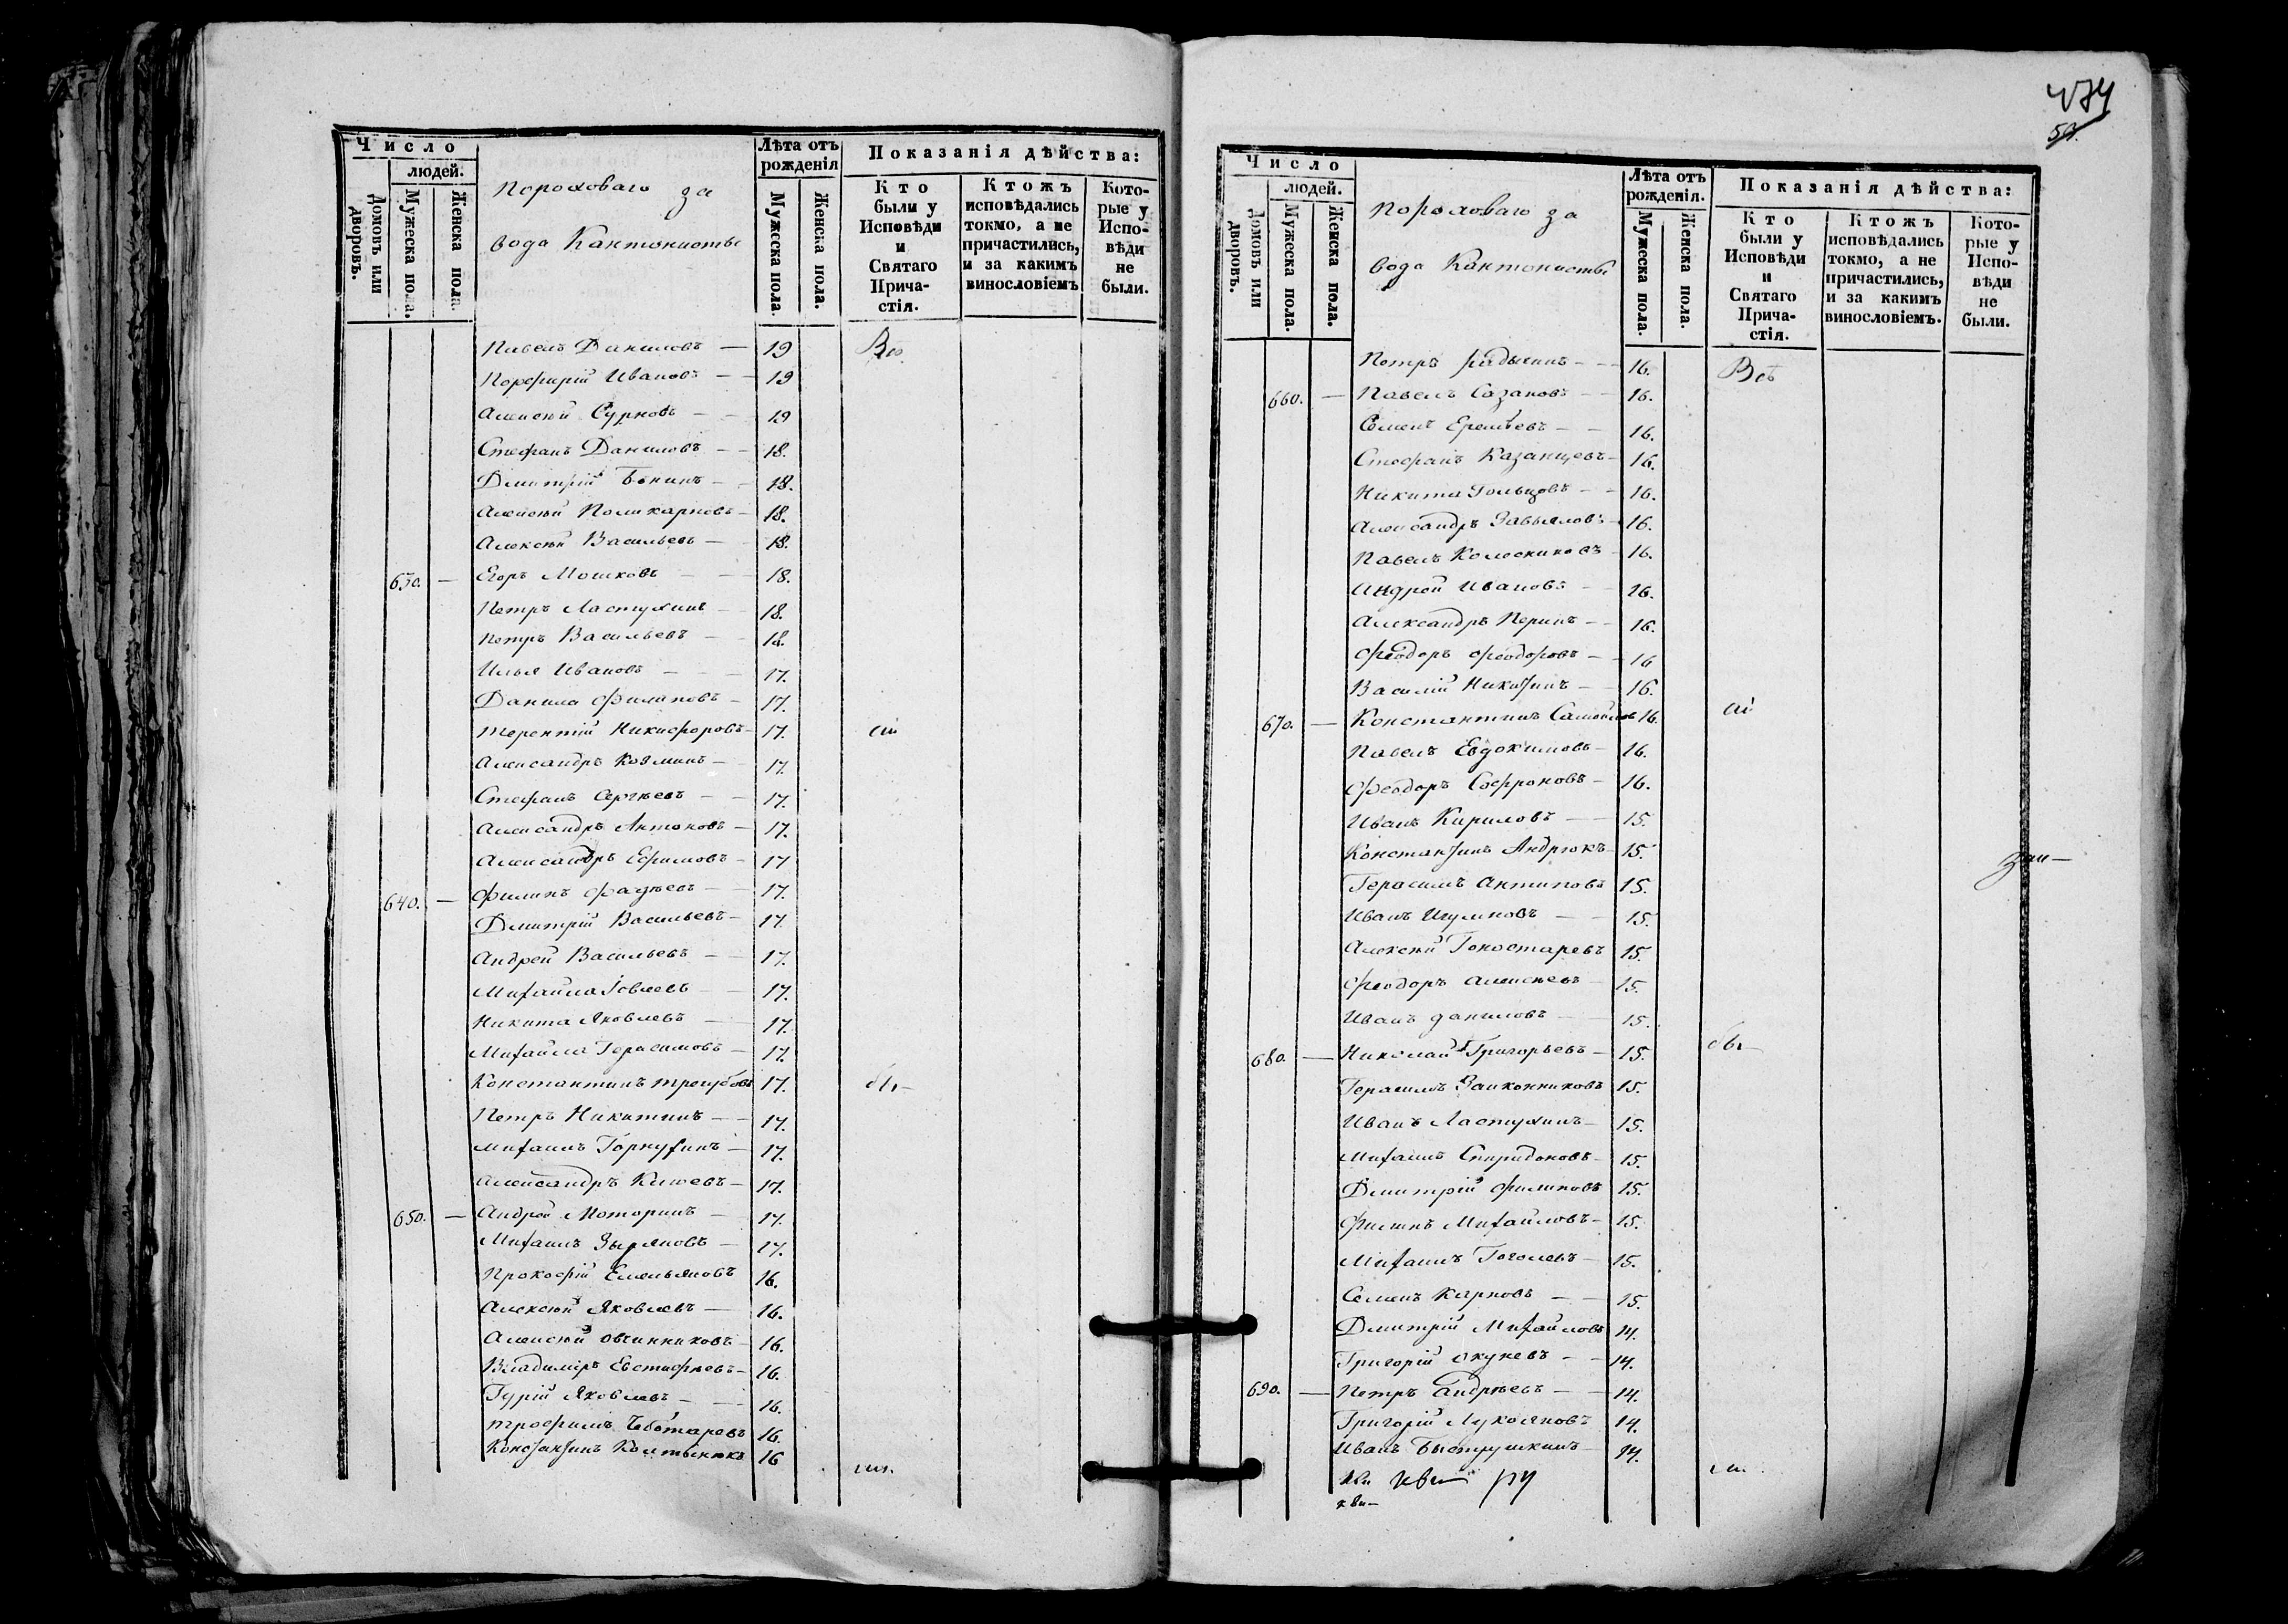 Число
людей.
Домовъ или дворовъ.
Мужеска пола.
Женска пола.
Пороховаго за
вода Кантонисты
Лѣта отъ рожденія
Мужеска пола.
Женска пола.
Показанія дѣйства:
Кто были у Исповѣди и Святаго Прича- стія.
Ктожъ исповѣдались токмо, а не причастились, и за какимъ винословіемъ
Кото- рые у Испо- вѣди не были.
Павелъ Даниловъ — 19 Всѣ
Порфирій Ивановъ — 19
Алексѣй Сурковъ — 19
Стефанъ Даниловъ — 18.
Дмитрій — 18.
Алексѣй Поликарповъ — 18.
Алексѣй Васильевъ — 18.
630. — Егоръ Мошковъ — 18.
Петръ Ластухинъ — 18.
Петръ Васильевъ — 18.
Илья Ивановъ — 17.
Данила Филиповъ — 17.
Терентій Никифоровъ — 17.
Александръ Козминъ — 17.
Стефанъ Сергѣевъ — 17.
Александръ Антоновъ — 17.
Александръ Ефимовъ — 17
640. — Филипъ Фадѣевъ — 17.
Дмитрій Васильевъ — 17.
Андрей Васильевъ — 17.
Михайла — 17.
Никита Яковлевъ — 17.
Михайла Герасимовъ — 17.
Константинъ 17.
Петръ Никитинъ — 17.
Михаилъ — 17.
Александръ — 17.
650. — Андрей Моторинъ — 17.
Михаилъ Зыряновъ — 17.
Прокофій Емельяновъ 16.
Алексѣй Яковлевъ — 16.
Алексѣй Овчинниковъ — 16.
Владиміръ Евстифѣевъ — 16.
Гурій Яковлевъ — 16.
Трофимъ Чеботаревъ 16.
Константинъ 16
474
Число
людей.
Домовъ или дворовъ.
Мужеска пола.
Женска пола.
Пороховаго за
вода Кантонисты
Лѣта отъ рожденія.
Мужеска пола.
Женска пола.
Показанія дѣйства:
Кто были у Исповѣди и Святаго Прича- стія.
Ктожъ исповѣдались токмо, а не причастились, и за какимъ винословіемъ.
Кото- рые у Испо- вѣди не были.
Петръ — 16. Всѣ
660. — Павелъ Сазановъ — 16.
Семенъ Еремѣевъ — 16.
Стефанъ Казанцевъ — 16.
Никита Гольцовъ — 16.
Александръ Завьяловъ — 16.
Павелъ Колесниковъ — 16.
Андрей Ивановъ — 16.
Александръ Перинъ — 16.
Феодоръ Феодоровъ — 16
Василій Никитинъ — 16.
670. — Константинъ Самойловъ 16.
Павелъ Евдокимовъ — 16.
Феодоръ Софроновъ — 16.
Иванъ Кириловъ — 15.
Константинъ Андрюкъ — 15.
Герасимъ Антиповъ 15.
Иванъ Игумновъ — 15.
Алексѣй Гоностаревъ 15.
Феодоръ Алексѣевъ — 15.
Иванъ Даниловъ — 15.
680. — Николай Григорьевъ — 15.
Герасимъ 15.
Иванъ Ластухинъ — 15.
Михаилъ Спиридоновъ — 15.
Дмитрій Филиповъ 15.
Филипъ Михайловъ — 15.
Михаилъ Гоголевъ — 15.
Семенъ Карповъ — 15.
Дмитрій Михайловъ 14.
Григорій Окуневъ — 14.
690. — Петръ Андрѣевъ — 14.
Григорій Лукояновъ 14.
Иванъ Быструшкинъ 14.